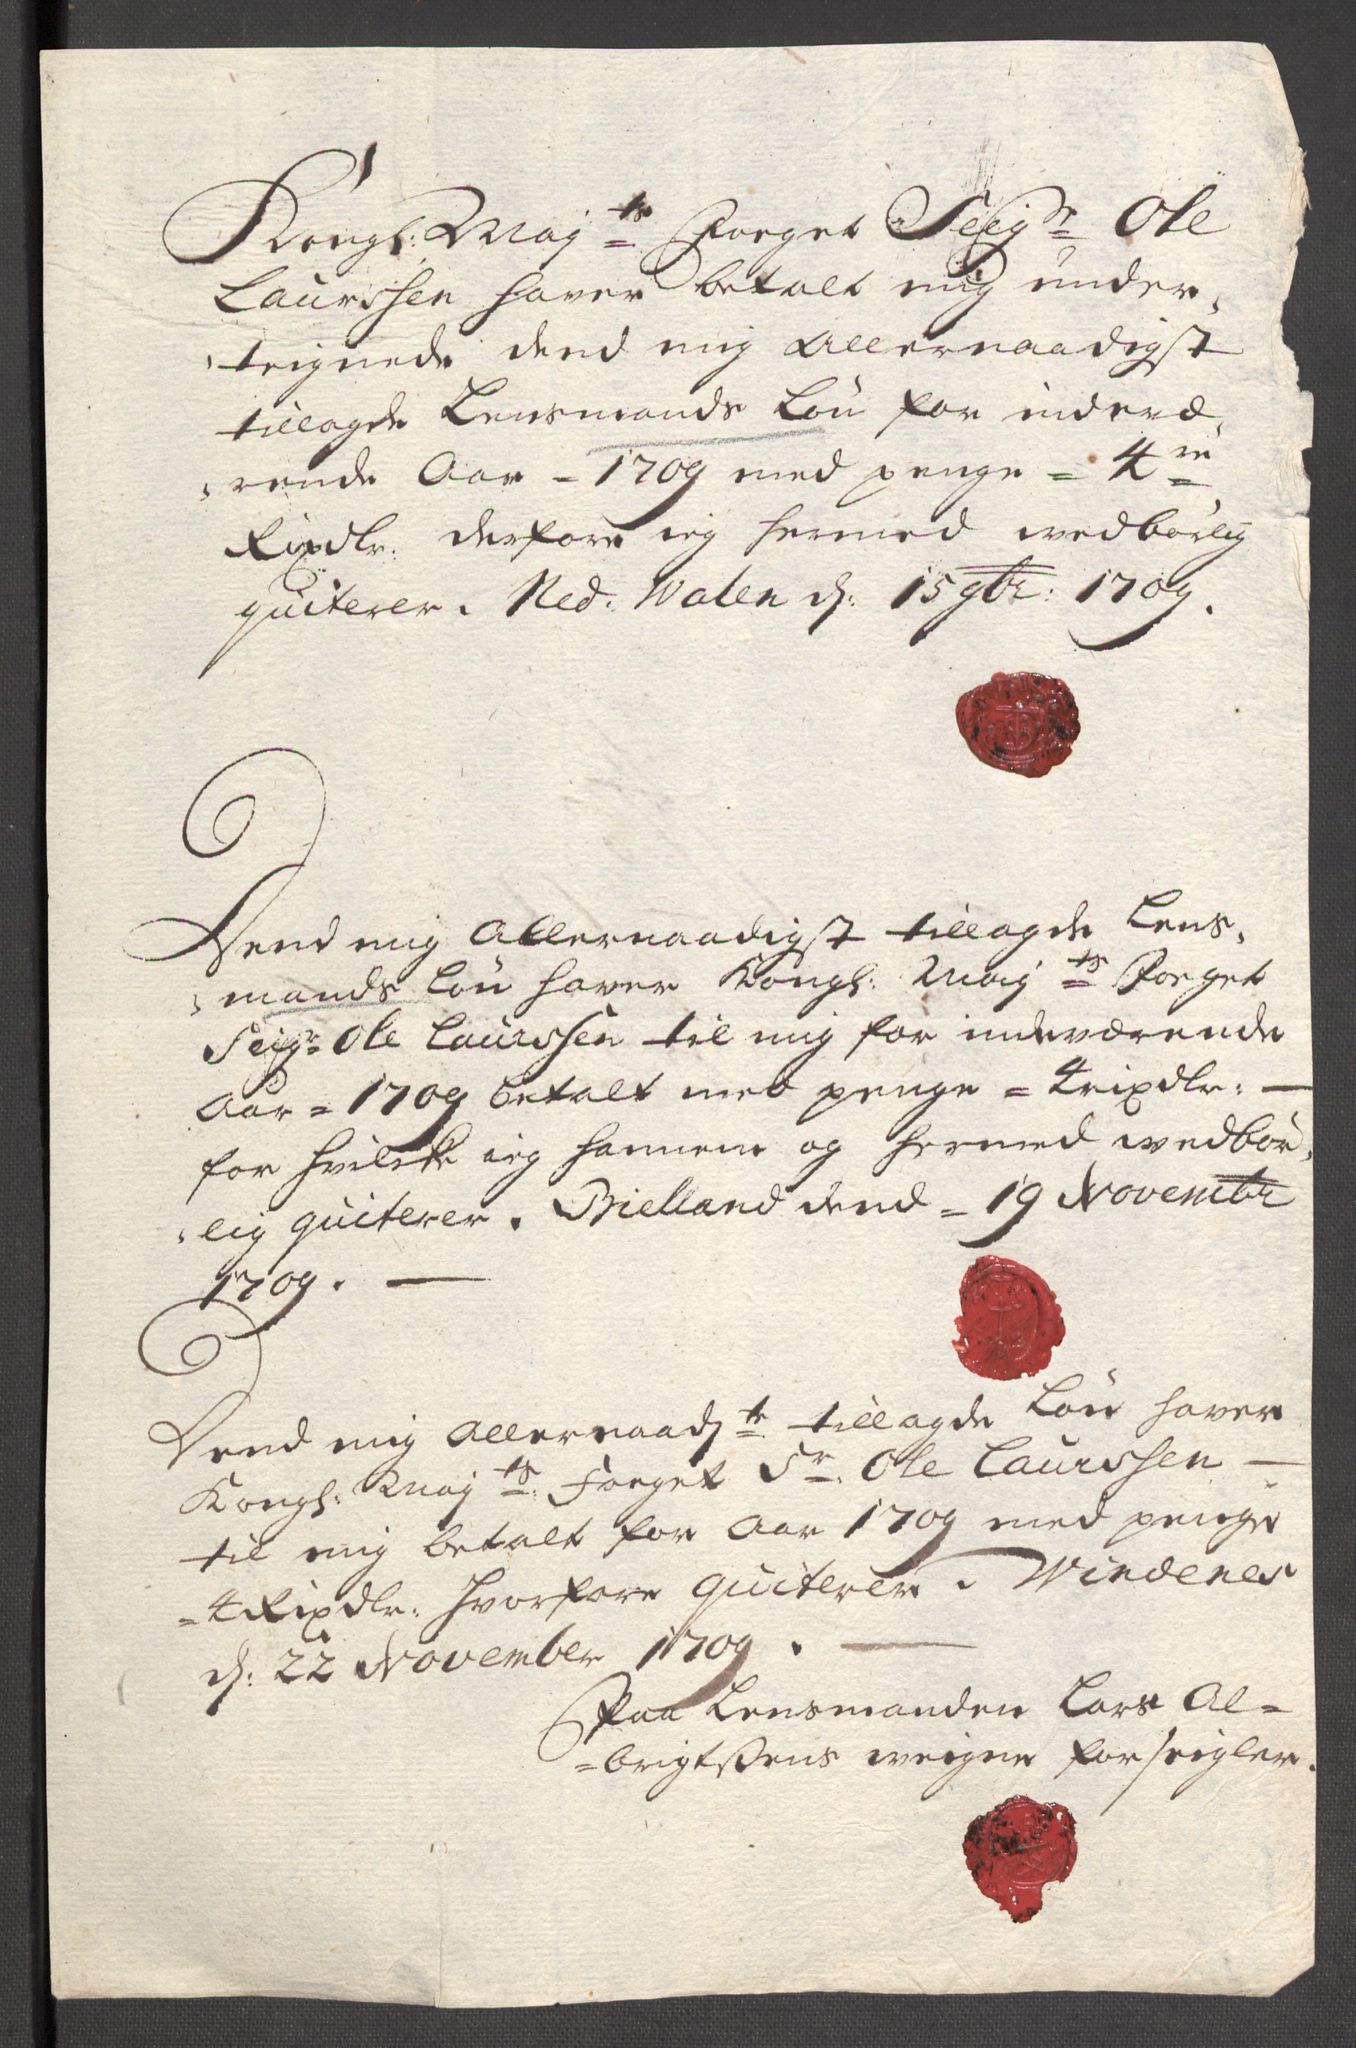 Kongl: Maÿ:ts Foeget Seigr Ole
Laurssen haver betalt mig under,
,teignede dend mig Allernaadigst
tillagde Lensmands Løn for inderæ,
,rende Aar - 1709 med penge - 4re
Rixdlr: derfore ieg hermed wedbørlig
quiterer. Ned: Walen d: 15 9br: 1709.
Dend mig Allernaadigst tillagde Lens,
,mands Løn haver Kongl: Maÿ:ts Foeget
Seigr Ole Laurssen til mig for indeværende
Aar = 1709 betalt med penge = 4 rixdlr: —
for hvilcke ieg hannem og hermed wedbør,
,lig quiterer. Bielland dend = 19 Novembr
1709. —
Dend mig Allernaadste tillagde Løn haver
Kongl: Maÿ:ts Foeget Sr Ole Laurssen —
til mig betalt for Aar 1709 med penge
= 4 Rixdlr: hvorfore quiterer. Windenes
d: 22 November 1709. —
Paa Lensmanden Lars Al=
=brigtßens weigne forseigler.